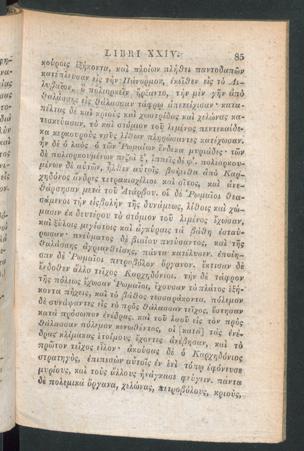 LIBRI XXIV. 85
κούροις ἑξήκοντα, καὶ πλοίων πλῆθει παντοδαπῶν
κατέπλευσαν εἰς τὴν Πάνορμον, ἐκεῖθεν εἰς τὸ Λι-
λύβαιον, ὃ πολιορκεῖν ἤρξαντο, τὴν μὲν γῆν ἀπὸ
θαλάσσης εἰς θάλασσαν τάφρῳ ἀπετείχισαν· κατα-
πέλτας δὲ καὶ κριοὺς καὶ χωστρίδας καὶ χελώνας κα-
τεσκεύασαν. τὸ καὶ στόμιον τοῦ λιμένος πεντεκαίδε-
κα κερκούρους νηὸς λίθων πληρώσαντες κατέχωσαν.
ἦν δὲ ὁ λαὸς ὁ τῶν Ῥωμαίων ἕνδεκα μυριάδες· τῶν
δὲ πολιορκουμένων πεζοὶ ζ, ἱππεῖς δὲ ψ. πολιορκου-
μένων δὲ αὐτῶν, ἦλθεν αὐτοῖς βοήθεια ἀπὸ Καρ-
χηδόνος ἄνδρες τετρακισχίλιοι καὶ σῖτος, καὶ ἀνε-
θάρσησαν μετὰ τοῦ Ἀτάρβου. οἱ δὲ Ῥωμαῖοι θεα-
σάμενοι τὴν εἰσβολὴν τῆς δυνάμεως, λίθοις καὶ χώ-
μασιν ἐκ δευτέρου τὸ στόμιον τοῦ λιμένος ἔχωσαν,
καὶ ξύλοις μεγίστοις καὶ ἀγκύραις τὰ βάθη ἐσταύ-
ρωσαν· πνεύματος δὲ βιαίου πνεύσαντος, καὶ τῆς
θαλάσσης ἀγριανθείσης, πάντα κατέλυσεν. ἐποίη-
σαν δὲ Ῥωμαῖοι πετροβόλον ὄργανον. ἔκτισαν δὲ
ἔνδοθεν ἄλλο τεῖχος Καρχηδόνιοι. τὴν δὲ τάφρον
τῆς πόλεως ἔχωσαν Ῥωμαῖοι, ἔχουσαν τὸ πλάτος ἑξή-
κοντα πήχεις, καὶ τὸ βάθος τεσσαράκοντα. πόλεμον
δὲ συνάψαντες εἰς τὸ πρὸς θάλασσαν τεῖχος, ἔστησαν
κατὰ πρόσωπον ἐνέδρας, καὶ τοῦ λαοῦ εἰς τὸν πρὸς
θάλασσαν πόλεμον κενωθέντος, οἱ [κατὰ] τὰς ἐνέ-
δρας κλίμακας ἑτοίμους ἔχοντες ἀνέβησαν, καὶ τὸ
πρῶτον τεῖχος εἷλον· ἀκούσας δὲ ὁ Καρχηδόνιος
στρατηγὸς, ἐπιπεσὼν αὐτοῖς ἐν ἑνὶ τόπῳ ἐφόνευσε
μυρίους, καὶ τοὺς ἄλλους ἠνάγκασε φεύγειν. πάντα
δὲ πολεμικὰ ὄργανα, χελώνας, πετροβόλους, κριοὺς,